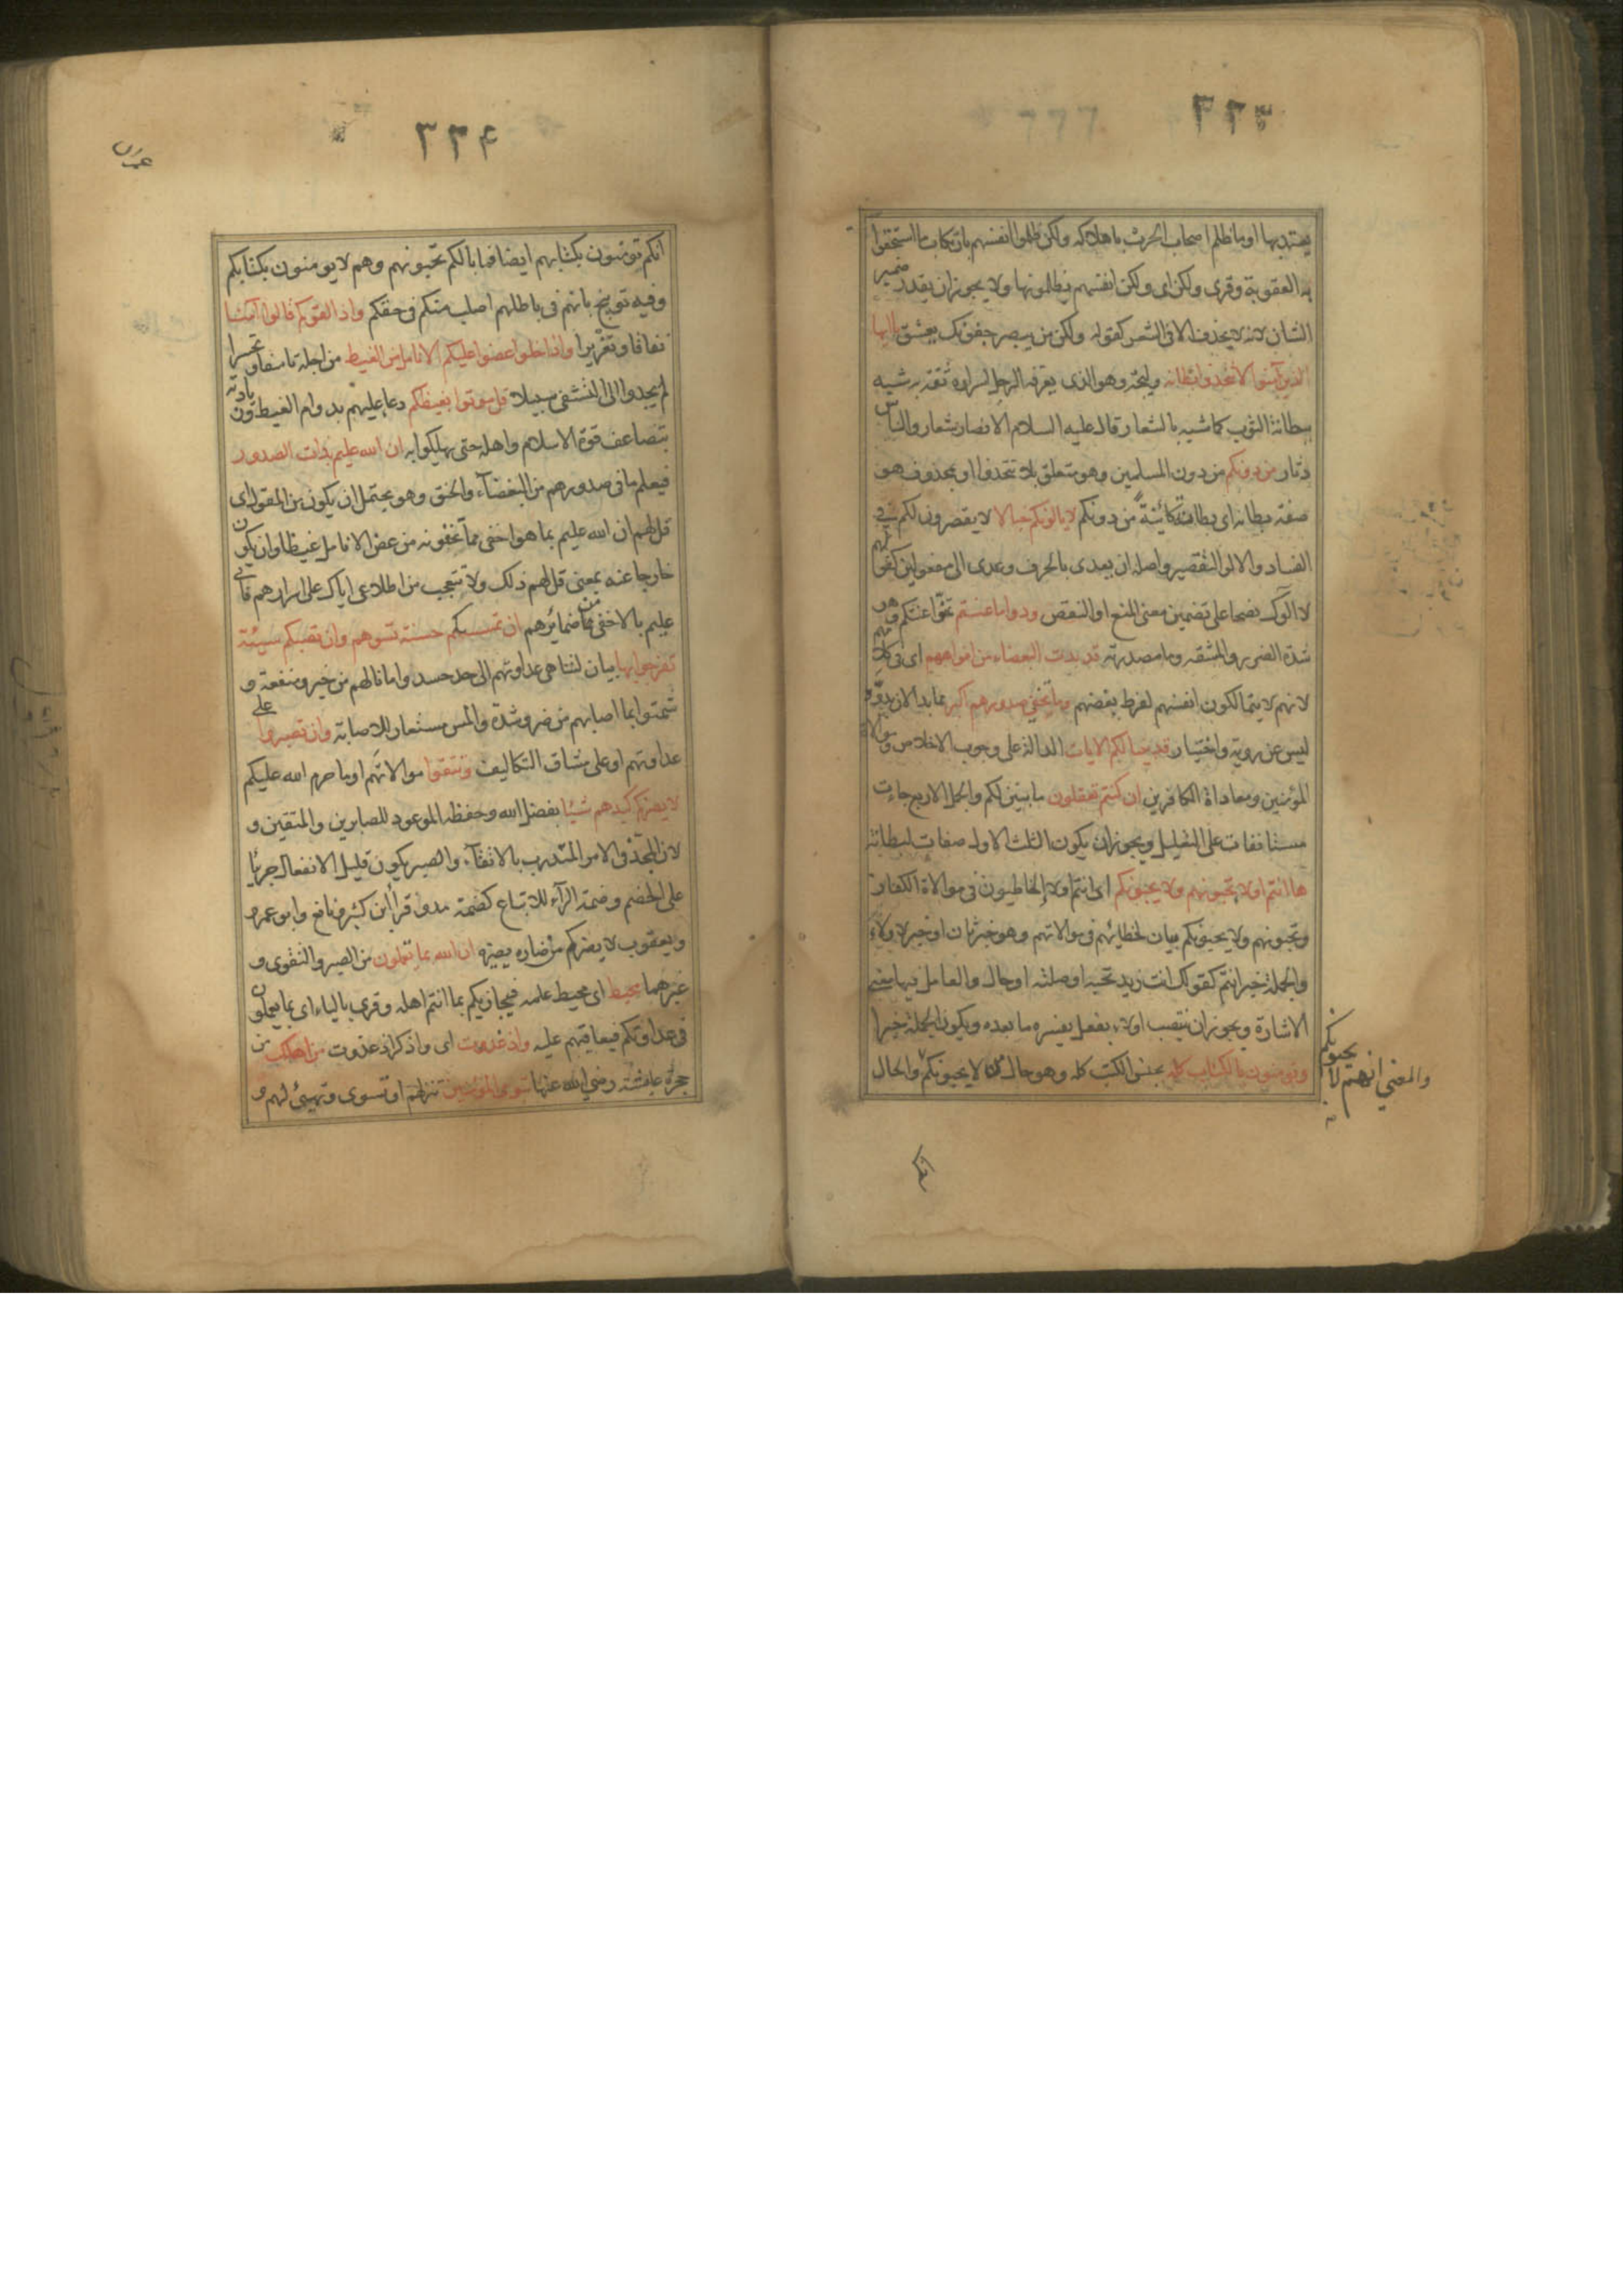 ٣٣٣
يعتد بها او ما ظلم اصحاب الحرث باهلاكه ولكن ظلموا انفسهم بارتكاب ما استحقوا
به العقوبة وقرى ولكن اى ولكن انفسهم يظلمونها ولا يجوز ان يقدر ضمير
الشان لانه لا يحذف الا فى الشعر كقوله ولكن من يبصر جفونك يعشق يا ايها
الذين آمنوا لا تتخذوا بطانه وليجة وهو الذى يعرفه الرجل اسراره ثقة به شبه
ببطانة الثوب كما شبه بالشعار قال عليه السلام الانصار شعار والناس
دثار من دونكم من دون المسلمين وهو متعلق بلا تتخذوا او بمحذوف هو
صفة بطانه اى بطانة كائنة من دونكم لا يالونكم خبالا لا يقصرون لكم فى
الفساد والالو التقصير واصله ان يعدى بالحرف وعدى الى مفعولين كقولهم
لا الوك نصحا على تضمين معنى المنع او النقص ودوا ما عنتم تمنوا عنتكم وهو
شدة الضرر والمشقه وما مصدرية قد بدت البغضاء من افواههم اى فى كلامهم
لانهم لا يتمالكون انفسهم لفرط بغضهم وما تخفى صدورهم اكبر مما بدا لان بدوه
ليس عن روية واختيار قد بينا لكم الايات الدالة على وجوب الاخلاص وموالاة
المؤمنين ومعاداة الكافرين ان كنتم تعقلون ما بين لكم والجمل الاربع جاءت
مستانفات على التعليل ويجوز ان يكون الثلث الاول صفات لبطانة
ها انتم اولاء تحبونهم ولا يحبونكم اى انتم اولاء الخاطيون فى موالاة الكفار
وتحبونهم ولا يحبونكم بيان لخطائهم فى موالاتهم وهو خبر ثان او خبر لاولاء
والجملة خبر انتم كقولك انت زيد تحبه او صلته او حال والعامل فيها معنى
الاشارة ويجوز ان ينتصب اولاء بفعل يفسره ما بعده ويكون الجملة خبرا
وتومنون بالكتاب كله بجنس الكتب كله وهو حال من لا يحبونكم والحال
والمعنى انهم لا يحبونكم
انكم
٣٣٤
انكم تومنون بكتابهم ايضا فما بالكم تحبونهم وهم لا يومنون بكتابكم
وفيه توبيخ بانهم فى باطلهم اصلب منكم فى حقكم واذا لقوكم قالوا آمنا
نفاقا وتغريرا واذا خلوا عضوا عليكم الانامل من الغيظ من اجله تاسفا وتحسرا
لم يجدوا الى التشفى سبيلا قل موتوا بغيظكم دعا عليهم بدوام الغيظ وزيادته
بتضاعف قوة الاسلام واهله حتى يهلكوا به ان الله عليم بذات الصدور
فيعلم ما فى صدورهم من البغضاء والحنق وهو يحتمل ان يكون من المقول اى
قل لهم ان الله عليم بما هو اخفى مما تخفونه من عض الانامل غيظا وان يكون
خارجا عنه بمعنى قل لهم ذلك ولا تتعجب من اطلاعى اياك على اسرارهم فانى
عليم بالاخفى من ضمائرهم ان تمسسكم حسنة تسوهم وان تصبكم سيئة
تفرحوا بها بيان لتناهى عداوتهم الى حد حسدوا ما نالهم من خير ومنفعة و
شمتوا بما اصابهم من ضر وشدة والمس مستعار للاصابة وان تصبروا على
عداوتهم او على مشاق التكاليف وتتقوا موالاتهم او ما حرم الله عليكم
لا يضركم كيدهم شيئا بفضل الله وحفظه الموعود للصابرين والمتقين و
لان المجد فى الامر المتدرب بالاتقاء والصبر يكون قليل الانفعال جريا
على الخصم وضمة الراء للاتباع كضمة مد وقرأ ابن كثير ونافع وابو عمرو
ويعقوب لا يضركم من ضاره يضيره ان الله بما تعملون من الصبر والتقوى و
غيرهما محيط اى محيط علمه فيجازيكم بما انتم اهله وقرى بالياء اى بما يعملون
فى عداوتكم فيعاقبهم عليه واذ غدوت اى واذكر اذ غدوت من اهلك من
حجرة عايشه رضي الله عنها تبوى المؤمنين تنزلهم او تسوى وتهيئ لهم و